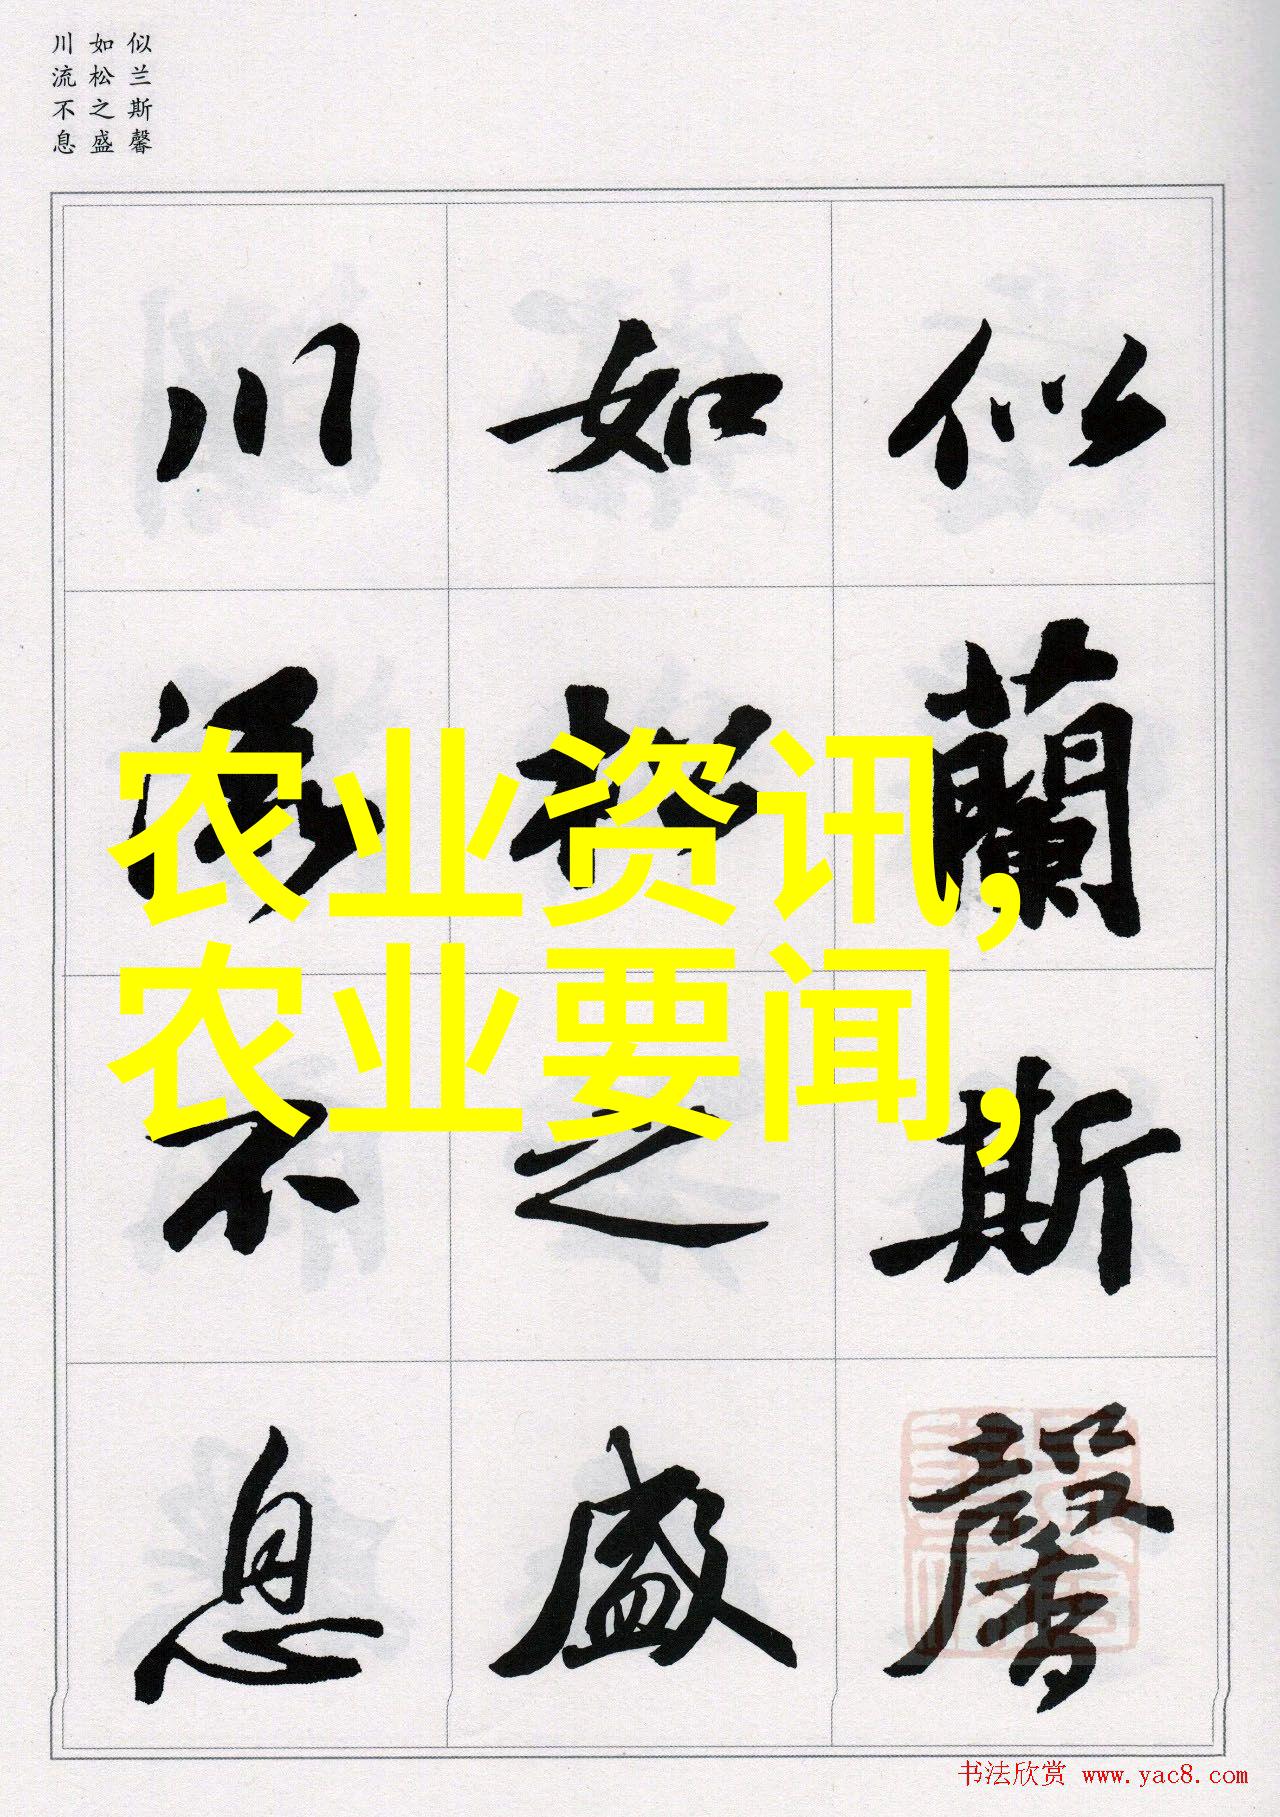 似兰斯馨
如松之盛
川流不息
似蘭斯馨
如松之盛
川流不息
农业资讯,
农业要闻,
书法欣赏 www.yac8.com